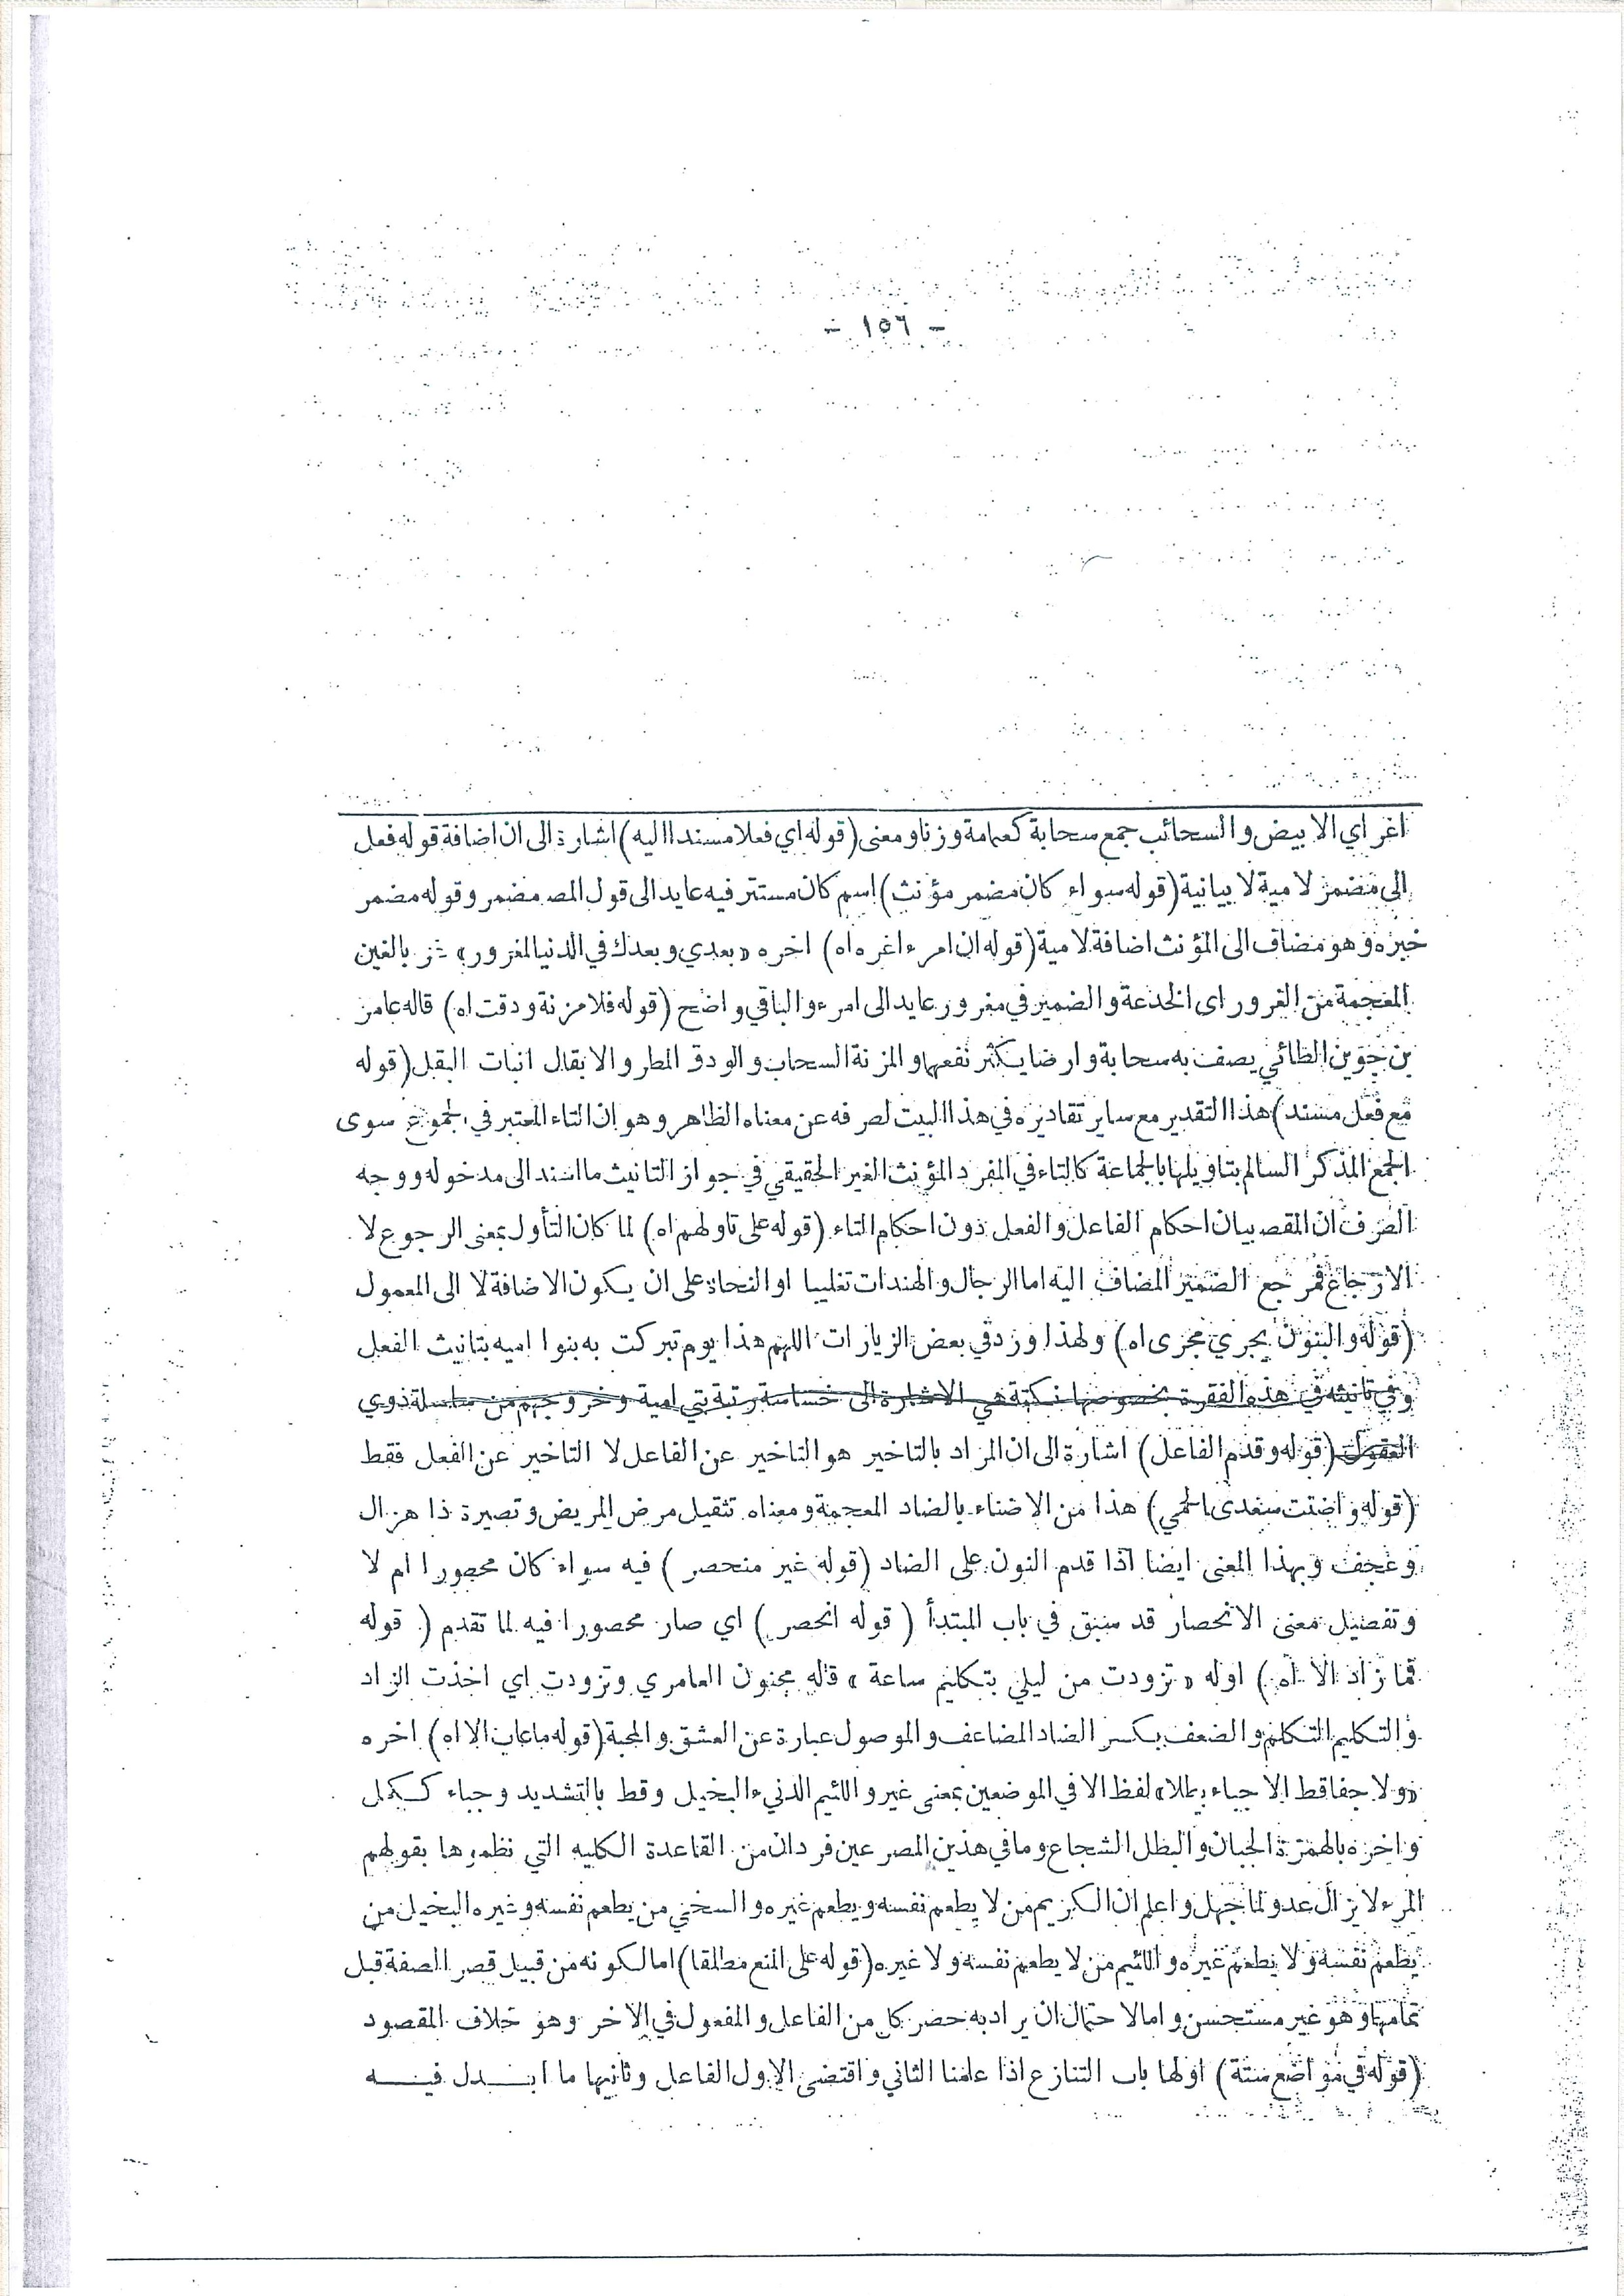 - ١٥٦ -
اغر اي الابيض والسحائب جمع سحابة كعمامة وزنا ومعنى (قوله اي فعلا مسندا اليه) اشارة الى ان اضافة قوله فعل
الى مضمر لامية لا بيانية (قوله سواء كان مضمر مؤنث) اسم كان مستتر فيه عايد الى قول المصـ مضمر وقوله مضمر
خبره وهو مضاف الى المؤنث اضافة لامية (قوله ان امرء اغره اه) اخره «بعدي وبعدك في الدنيا المغرور» بالغين
المعجمة من الغرور اى الخدعة والضمير في مغرور عايد الى امرء والباقي واضح (قوله فلا مزنة ودقت اه) قاله عامر
بن جوين الطائي يصف به سحابة وارضا يكثر نفعها والمزنة السحاب والودق المطر والابقال انبات البقل (قوله
مع فعل مسند) هذا التقدير مع ساير تقاديره في هذا البيت لصرفه عن معناه الظاهر وهو ان التاء المعتبر في الجموع سوى
الجمع المذكر السالم بتاويلها بالجماعة كالتاء في المفرد المؤنث الغير الحقيقي في جواز التانيث ما اسند الى مدخوله ووجه
الصرف ان المقصـ بيان احكام الفاعل والفعل دون احكام التاء (قوله على تاولهم اه) لما كان التأول بمعنى الرجوع لا
الارجاع فمرجع الضمير المضاف اليه اما الرجال والهندات تغليبا او النحاة على ان يكون الاضافة لا الى المعمول
(قوله والبنون يجري مجرى اه) ولهذا ورد في بعض الزيارات اللهم هذا يوم تبركت به بنوا اميه بتانيث الفعل
وفي تانيثه في هذه الفقرة بخصوصها نكتة هي الاشارة الى خساسة رتبة بني امية وخروجهم من سلسلة ذوي
العقول (قوله وقدم الفاعل) اشارة الى ان المراد بالتاخير هو التاخير عن الفاعل لا التاخير عن الفعل فقط
(قوله واضنت سعدى الحمي) هذا من الاضناء بالضاد المعجمة ومعناه تثقيل مرض المريض وتصيرة ذا هزال
وعجف وبهذا المعنى ايضا اذا قدم النون على الضاد (قوله غير منحصر) فيه سواء كان محصورا ام لا
وتفصيل معنى الانحصار قد سبق في باب المبتدأ (قوله انحصر) اي صار محصورا فيه لما تقدم (قوله
فما زاد الا اه) اوله «تزودت من ليلي بتكليم ساعة» قاله مجنون العامري وتزودت اي اخذت الزاد
والتكليم التكلم والضعف بكسر الضاد المضاعف والموصول عبارة عن العشق والمحبة (قوله ما عاب الا اه) اخره
«ولا جفا قط الا جباء بطلا» لفظ الا في الموضعين بمعنى غير واللئيم الدنيء البخيل وقط بالتشديد وجباء كـ
واخره بالهمزة الجبان والبطل الشجاع وما في هذين المصرعين فردان من القاعدة الكليه التي نظموها بقولهم
المرء لا يزال عدو لما جهل واعلم ان الكريم من لا يطعم نفسه ويطعم غيره والسخي من يطعم نفسه وغيره البخيل من
يطعم نفسه ولا يطعم غيره واللئيم من لا يطعم نفسه ولا غيره (قوله على المنع مطلقا) اما لكونه من قبيل قصر الصفة قبل
تمامها وهو غير مستحسن واما لا حتمال ان يراد به حصر كل من الفاعل والمفعول في الاخر وهو خلاف المقصود
(قوله في مواضع ستة) اولها باب التنازع اذا علمنا الثاني واقتضى الاول الفاعل وثانيها ما ابدل فيه